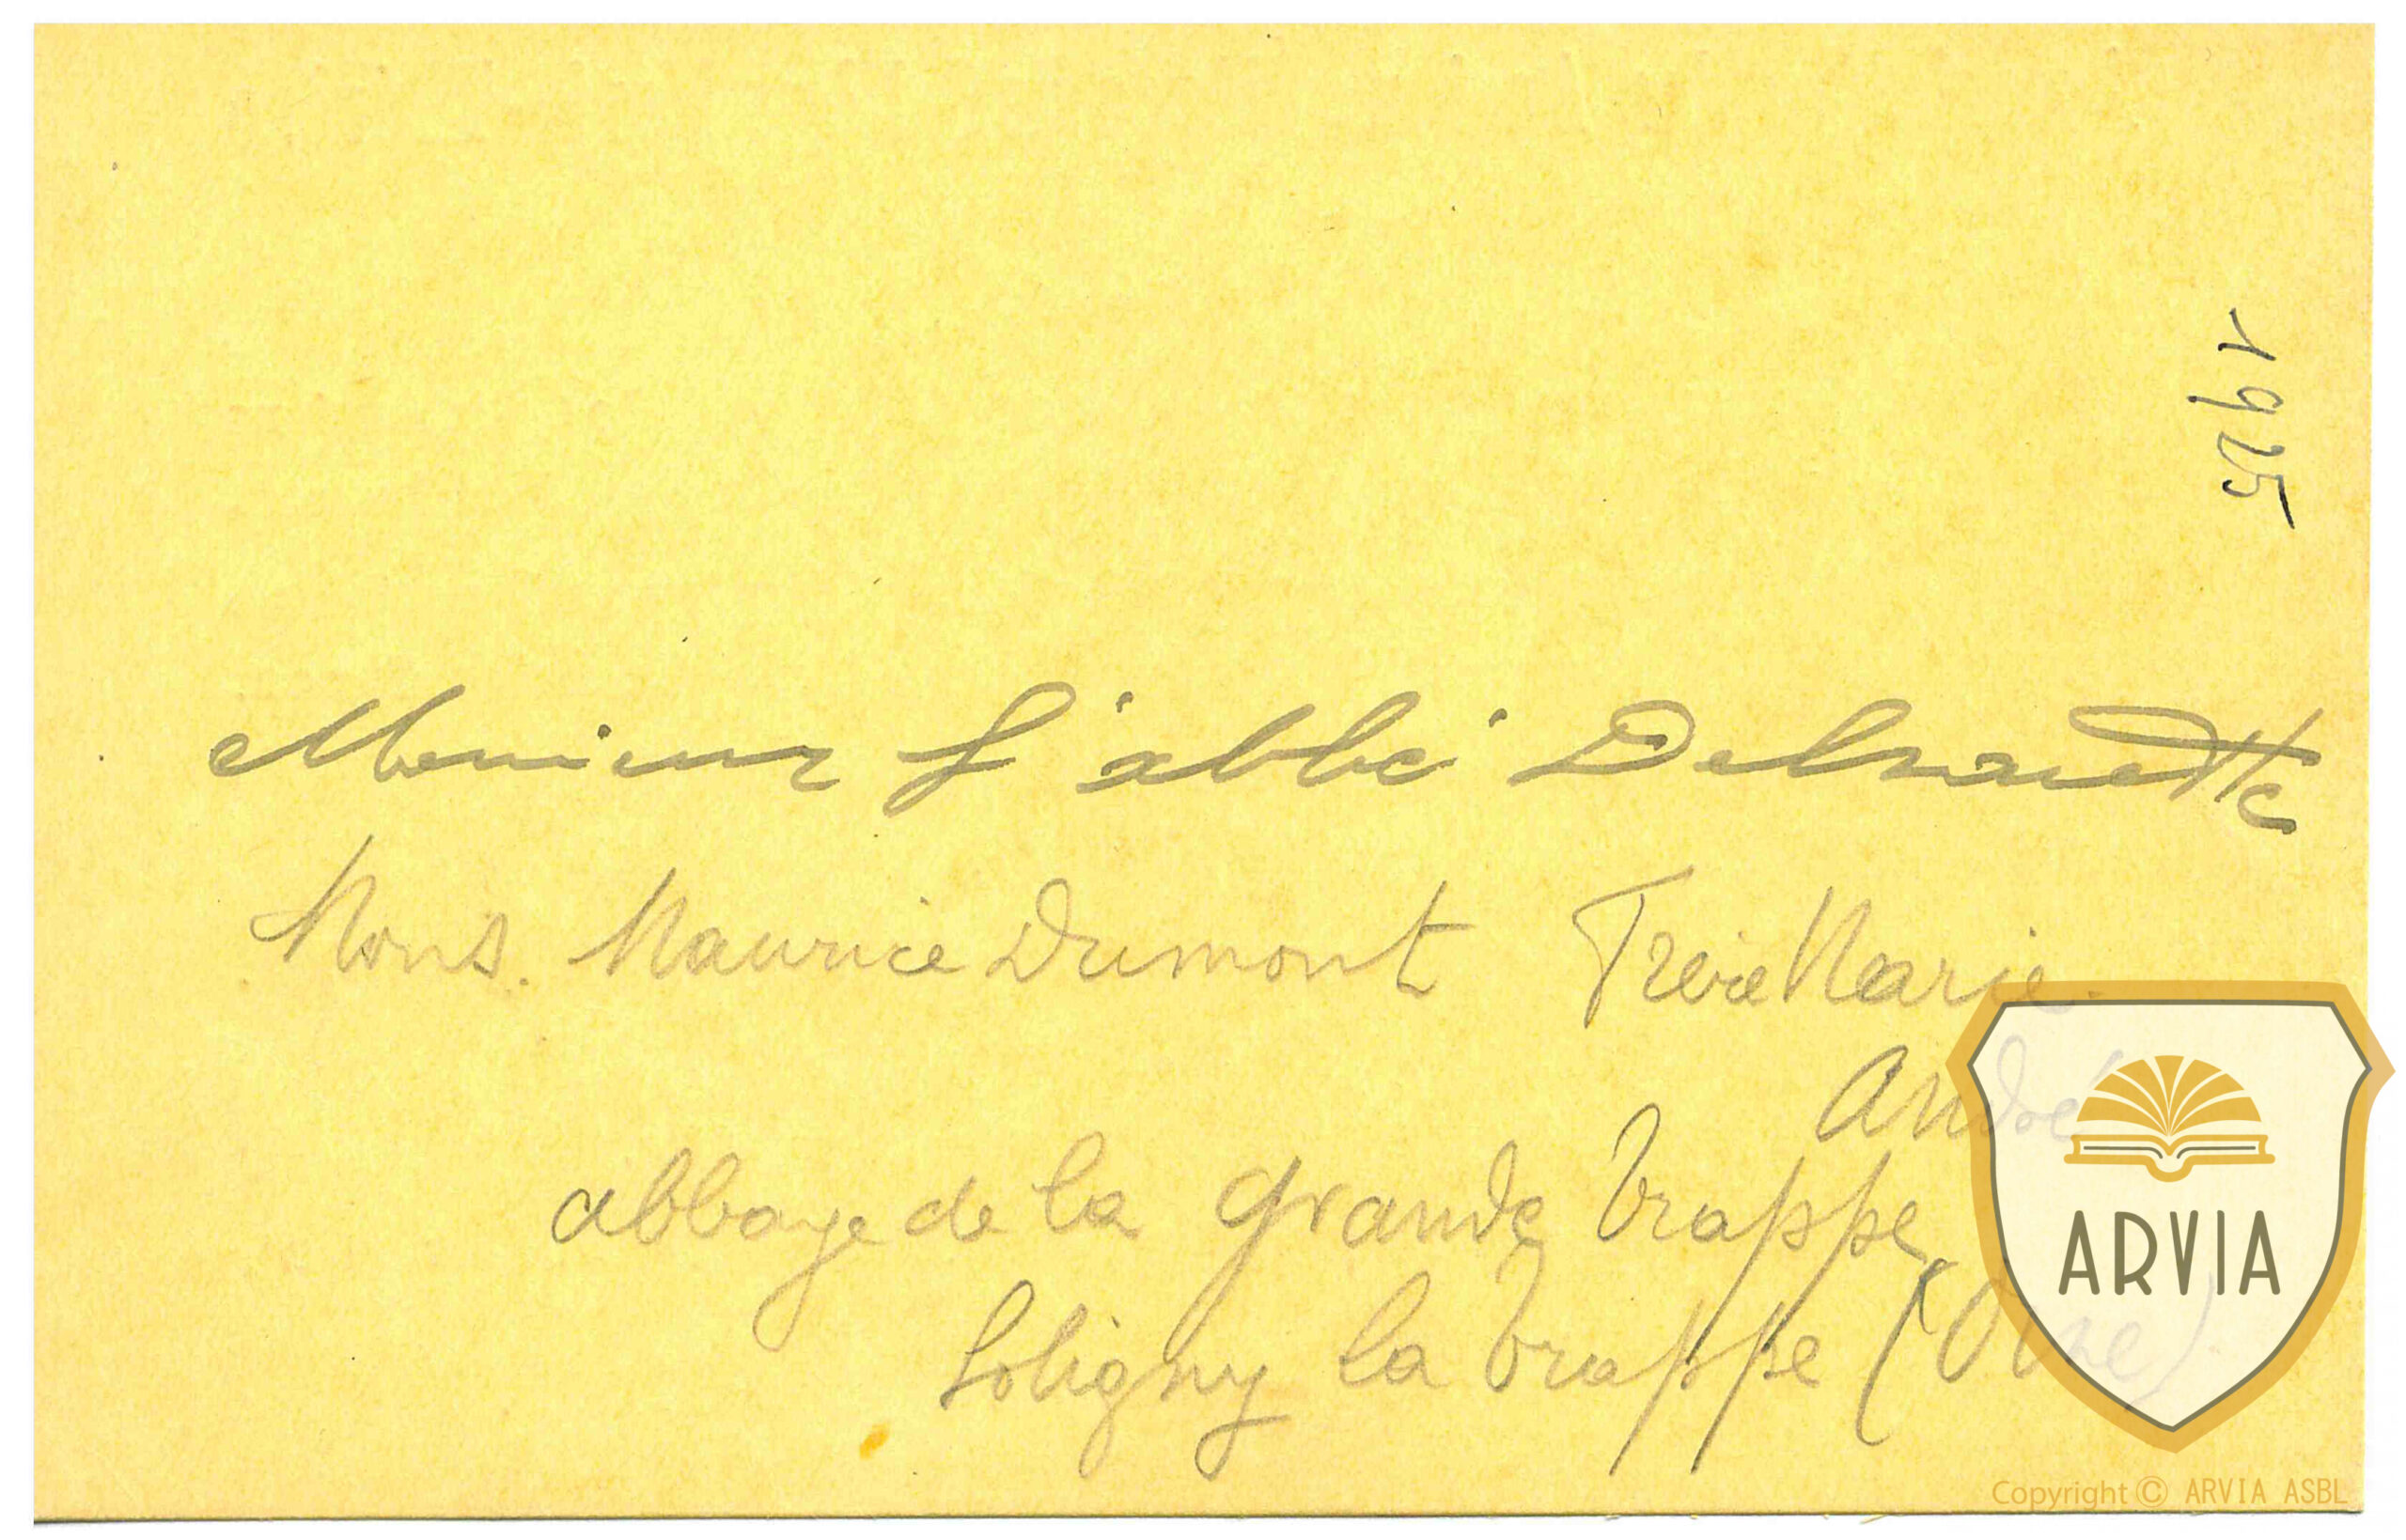 1925
Monsieur L'abbé Delsaette
Mons. Maurice Dumont Frère Marie
André
abbaye de la Grande Trappe
Soligny la Trappe (Orne).
ARVIA
Copyright © ARVIA ASBL